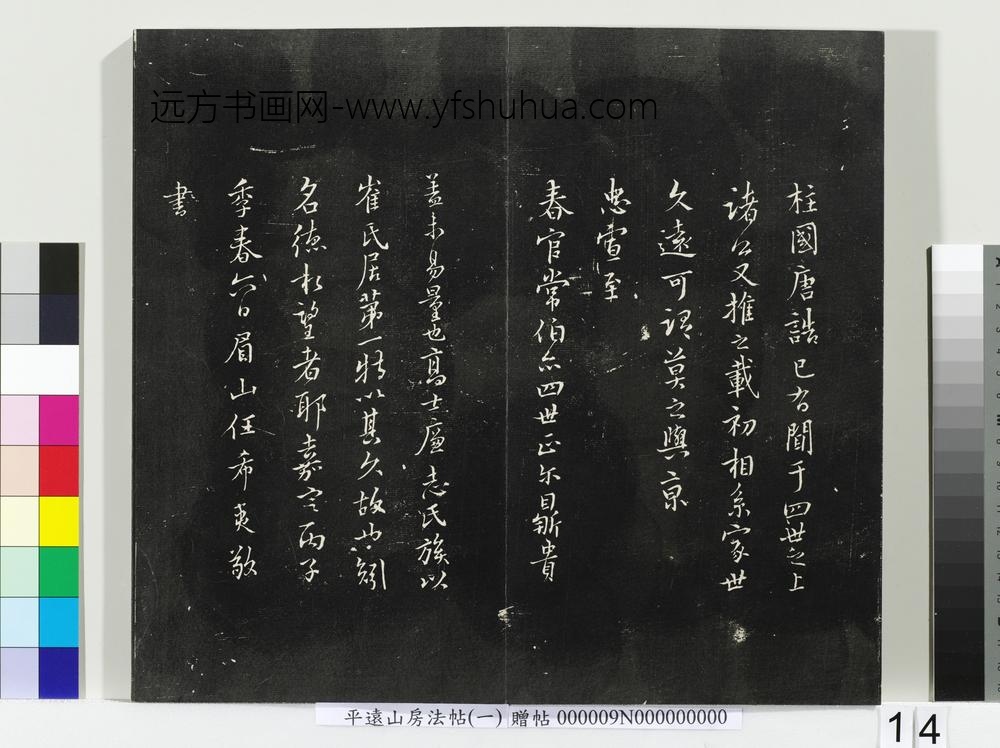 远方书画网-www.yfshuhua.com
柱國唐誥已有聞于四世之上
諸公又推之載初相系家世
久遠可謂莫之與京
忠宣至
春官常伯亦四世正尔目新貴
蓋未易量也高士廉志氏族以
崔氏居第一特以其久故此
名德相望者耶嘉定丙子
季春六日眉山任希夷敬
書
平遠山房法帖(一) 贈帖 000009N000000000
14